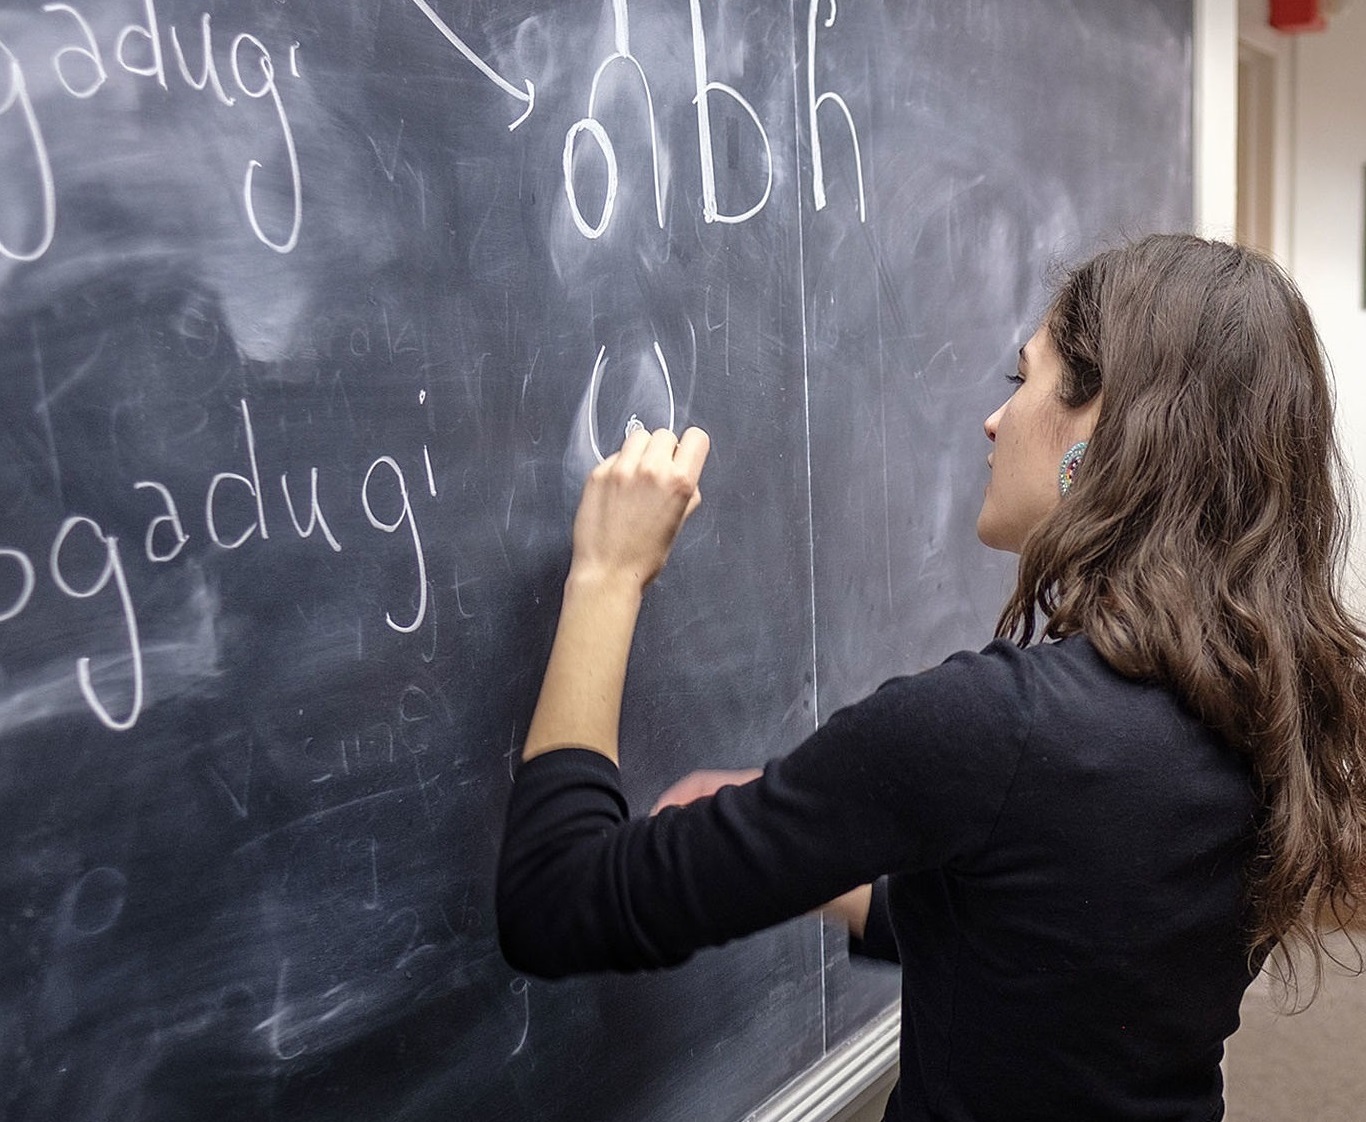 gadugi ᎣᏏᏂ
ogadugi